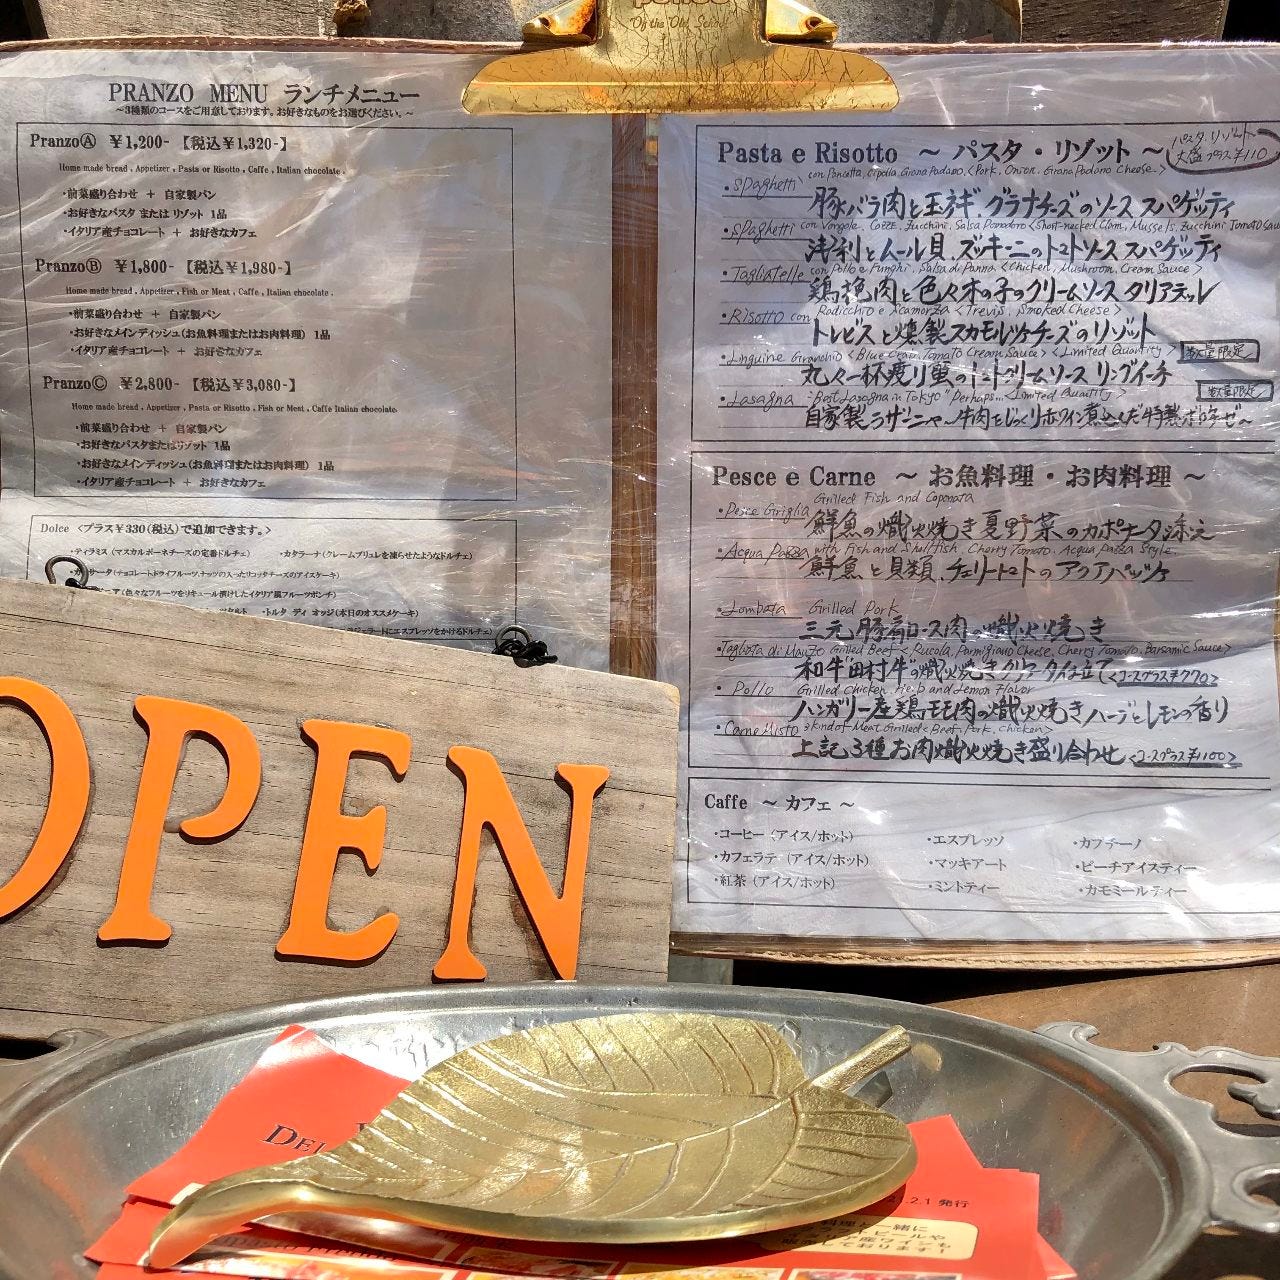 PRANZO MENU ランチメニュー
～3種類のコースをご用意しております。お好きなものをお選びください。～
PranzoⒶ ￥1,200-【税込￥1,320-】
Home made bread , Appetizer , Pasta or Risotto , Caffe , Italian chocolate .
・前菜盛り合わせ ＋ 自家製パン
・お好きなパスタ または リゾット 1品
・イタリア産チョコレート ＋ お好きなカフェ
PranzoⒷ ￥1,800-【税込￥1,980-】
Home made bread , Appetizer , Fish or Meat , Caffe , Italian chocolate .
・前菜盛り合わせ ＋ 自家製パン
・お好きなメインディッシュ(お魚料理またはお肉料理) 1品
・イタリア産チョコレート ＋ お好きなカフェ
PranzoⒸ ￥2,800-【税込￥3,080-】
Home made bread , Appetizer , Pasta or Risotto , Fish or Meat , Caffe Italian chocolate.
・前菜盛り合わせ ＋ 自家製パン
・お好きなパスタまたはリゾット 1品
・お好きなメインディッシュ(お魚料理またはお肉料理) 1品
・イタリア産チョコレート ＋ お好きなカフェ
Dolce <プラス￥330(税込)で追加できます。>
・ティラミス (マスカルポーネチーズの定番ドルチェ) ・カタラーナ(クレームブリュレを凍らせたようなドルチェ)
サータ(チョコレートドライフルーツ,ナッツの入ったリコッタチーズのアイスケーキ)
ニア (色々なフルーツをリキュール漬けしたイタリア風フルーツポンチ)
タルト ・トルタ ディ オッジ (本日のオススメケーキ)
ジェラートにエスプレッソをかけるドルチェ)
OPEN
Pasta e Risotto ～ パスタ・リゾット ～
パスタ リゾット
大盛プラス￥110
・Spaghetti con Pancetta, Cipolla Grana Padano <Pork, Onion, Grana Padano Cheese>
豚バラ肉と玉ネギ、グラナチーズのソース スパゲッティ
・Spaghetti con Vongole, Cozze, Zucchini, Salsa Pomodoro <Short-necked Clam, Mussels, Zucchini Tomato Sau
浅利とムール貝、ズッキーニのトマトソース スパゲッティ
・Tagliatelle con Pollo e Funghi, Salsa di Panna <Chicken, Mushroom, Cream Sauce>
鶏挽肉と色々木の子のクリームソース タリアテッレ
・Risotto con Radicchio e Scamorza <Trevis, Smoked Cheese>
トレビスと燻製スカモルツァチーズのリゾット
・Linguine Granchio <Blue Crab, Tomato Cream Sauce> <Limited Quantity> 数量限定
丸々一杯渡り蟹のトマトクリームソース リングイーネ
・Lasagna "Best Lasagna in Tokyo" Perhaps... <Limited Quantity> 数量限定
自家製ラザニャ～牛肉をじっくり赤ワイン煮込んだ特製
Pesce e Carne ～ お魚料理・お肉料理 ～
・Pesce Griglia Grilled Fish and Caponata
鮮魚の熾火焼き夏野菜のカポナータ添え
・Acqua Pazza with Fish and Shellfish, Cherry Tomato, Acqua Pazza Style
鮮魚と貝類、チェリートマトのアクアパッツァ
・Lombata Grilled Pork
三元豚肩ロース肉の熾火焼き
・Tagliata di Manzo Grilled Beef <Rucola, Parmigiano Cheese, Cherry Tomato, Barsamic Sauce>
和牛"田村牛"の熾火焼きタリアータ仕立て<コースプラス￥770>
・Pollo Grilled Chicken Herb and Lemon Flavor
ハンガリー産鶏モモ肉の熾火焼きハーブとレモンの香り
・Carne Misto 3 kind of Meat Grilled <Beef, Pork, Chicken>
上記3種お肉熾火焼き盛り合わせ <コースプラス￥1100>
Caffe ～ カフェ ～
・コーヒー (アイス/ホット) ・エスプレッソ ・カプチーノ
・カフェラテ (アイス/ホット) ・マッキアート ・ピーチアイスティー
・紅茶 (アイス/ホット) ・ミントティー ・カモミールティー
DEL
.2.1 発行
料理と一緒に
販売しております！